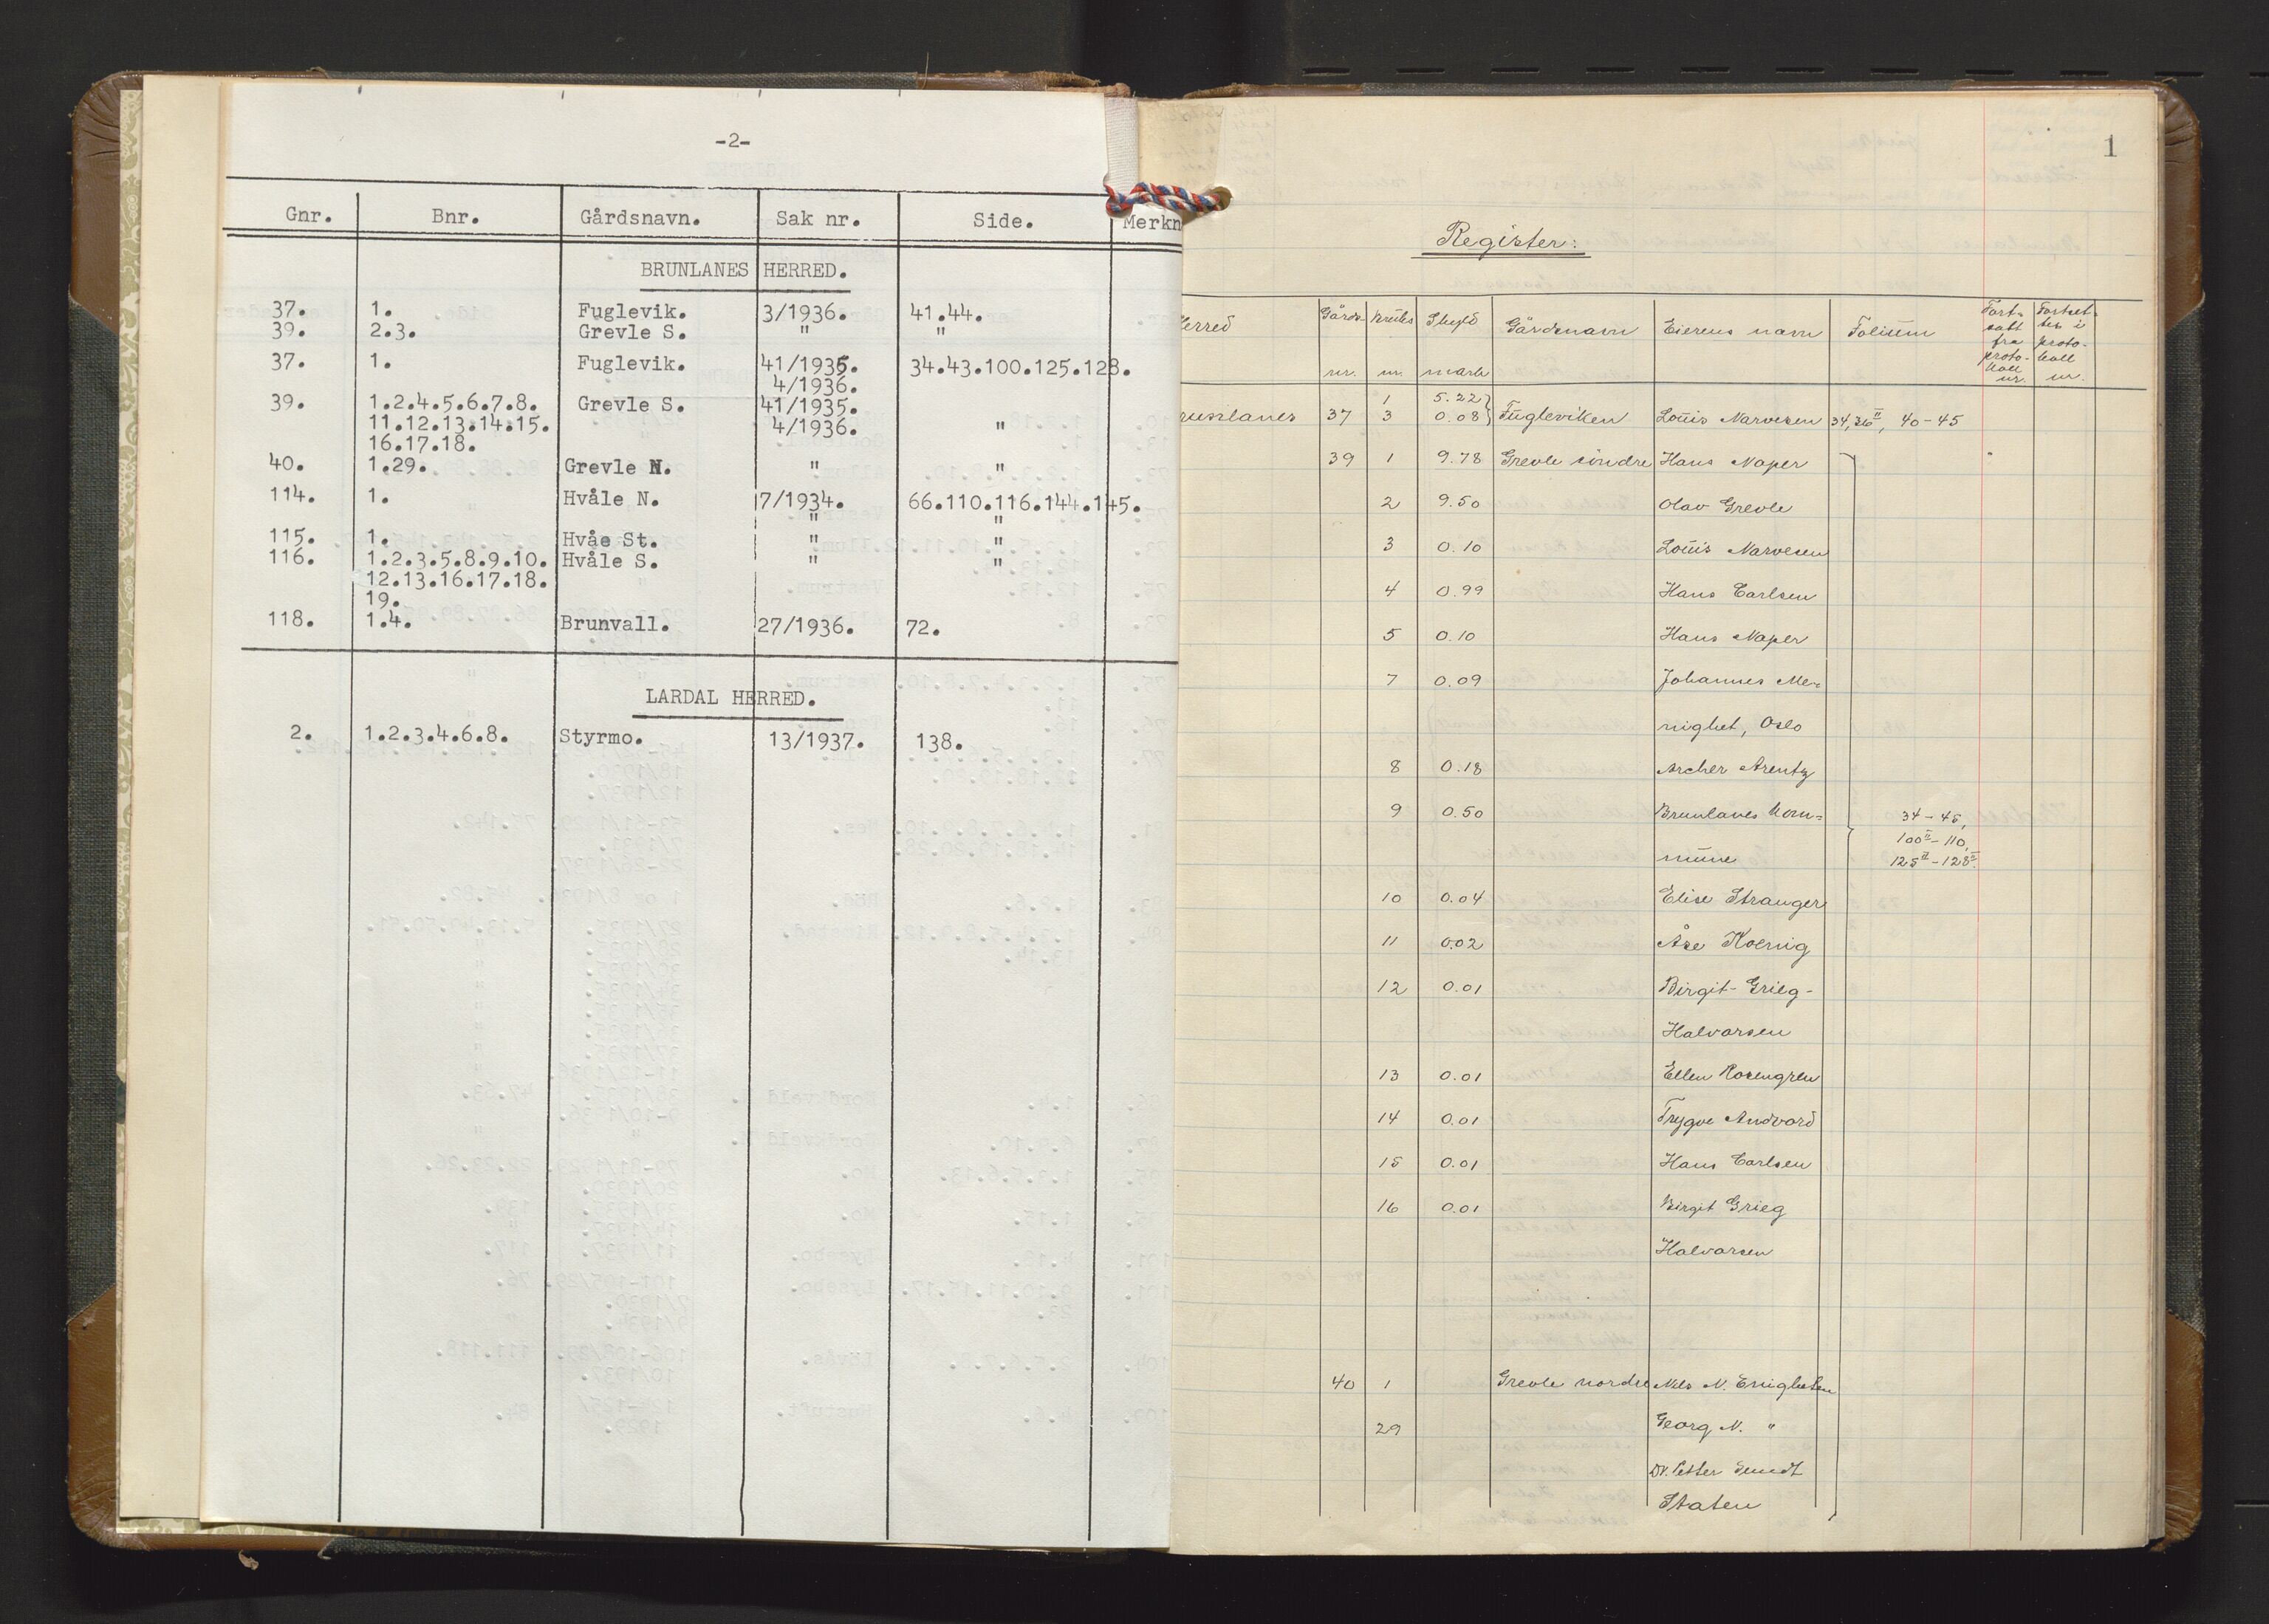 -2-
Gnr. Bnr. Gårdsnavn. Sak nr. Side. Merkn
BRUNLANES HERRED.
37. 1. Fuglevik. 3/1936. 41.44.
39. 2.3. Grevle S. " "
37. 1. Fuglevik. 41/1935. 34.43.100.125.128.
4/1936.
39. 1.2.4.5.6.7.8. Grevle S. 41/1935.
11.12.13.14.15. 4/1936. "
16.17.18.
40. 1.29. Grevle N. " "
114. 1. Hvåle N. 7/1934. 66.110.116.144.145.
" "
115. 1. Hvåe St. " "
116. 1.2.3.5.8.9.10. Hvåle S. " "
12.13.16.17.18.
19.
118. 1.4. Brunvall. 27/1936. 72.
LARDAL HERRED.
2. 1.2.3.4.6.8. Styrmo. 13/1937. 138.
1
Register:
Herred Gårds- nr. Bruks nr. Skyld mark Gårdsnavn Eierens navn Folium Fort- satt fra proto- koll nr. Fortset- tes i proto- koll nr.
1 5.22
runlanes 37 3 0.08 Fugleviken Louis Narvesen 34, 36II, 40-45
39 1 9.78 Grevle söndre Hans Naper
2 9.50 Olav Grevle
3 0.10 Louis Narvesen
4 0.99 Hans Carlsen
5 0.10 Hans Naper
7 0.09 Johannes Me-
nighet, Oslo
8 0.18 Archer Arentz
9 0.50 Brunlanes kom= 34-45,
mune 100II-110,
125II-128II
10 0.04 Elise Stranger
11 0.02 Åse Koenig
12 0.01 Birgit-Grieg-
Halvorsen
13 0.01 Ellen Rosengren
14 0.01 Trygve Andvord
15 0.01 Hans Carlsen
16 0.01 Birgit Grieg
Halvorsen
40 1 Grevle nordre Nils N.
29 Georg N. "
Dr. Petter
Staten